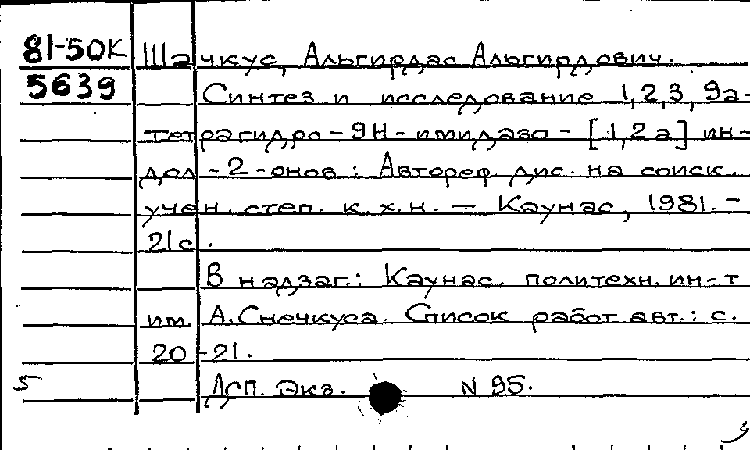 81-50К Шачкус, Альгирдас Альгирдович.
5639 Синтез и исследование 1,2,3,9а-
тетрагидро-9Н-имидазо-[1,2а] ин-
дол-2-онов: Автореф. дис. на соиск.
учен. степ. к.х.н. — Каунас, 1981. -
21с.
В надзаг.: Каунас. политехн. ин-т
им. А.Снечкуса. Список работ авт.: с.
20-21.
5 ДСП. Экз. N 95.